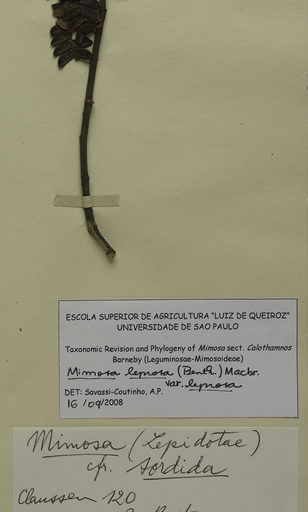 ESCOLA SUPERIOR DE AGRICULTURA "LUIZ DE QUEIROZ"
UNIVERSIDADE DE SAO PAULO
Taxonomic Revision and Phylogeny of Mimosa sect. Calothamnos
Barneby (Leguminosae-Mimosoideae)
Mimosa leprosa (Benth.) Macbr.
var. leprosa
DET: Savassi-Coutinho, A.P.
16 /09/2008
Mimosa (Lepidotae)
cfr. sordida
Claussen 120